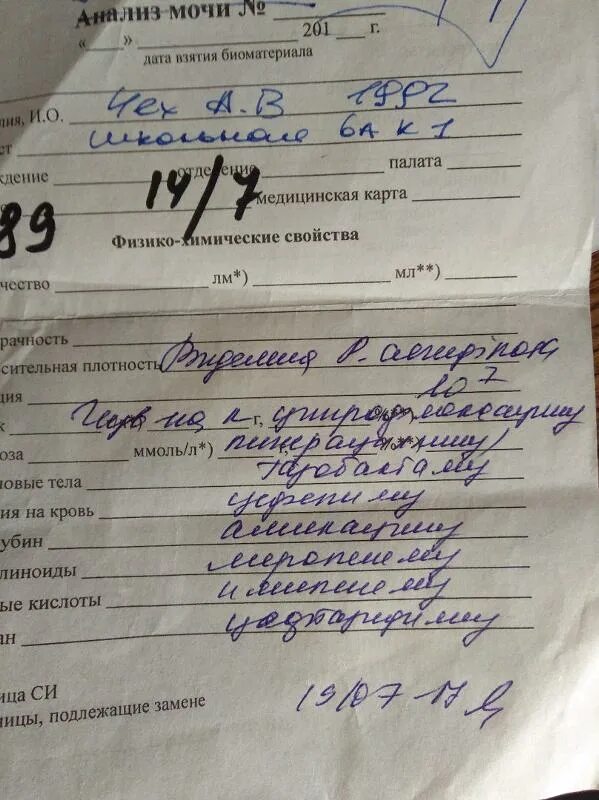 Анализ мочи №
« » 201 г.
дата взятия биоматериала
лия, И.О. Чех А.В 1992
ст школьная 6А к 1
ждение отделение палата
14/7 медицинская карта
89
Физико-химические свойства
чество лм*) мл**)
рачность
сительная плотность Виделина P. aeruginosa
ция 10 7
к на к г,
оза ммоль/л*) піперациліну
новые тела тазобактаму
ия на кровь цефепиму
убин амикацину
линоиды меропенему
ые кислоты имипенему
ан цефтазидиму
ица СИ
ницы, подлежащие замене
19/07 17